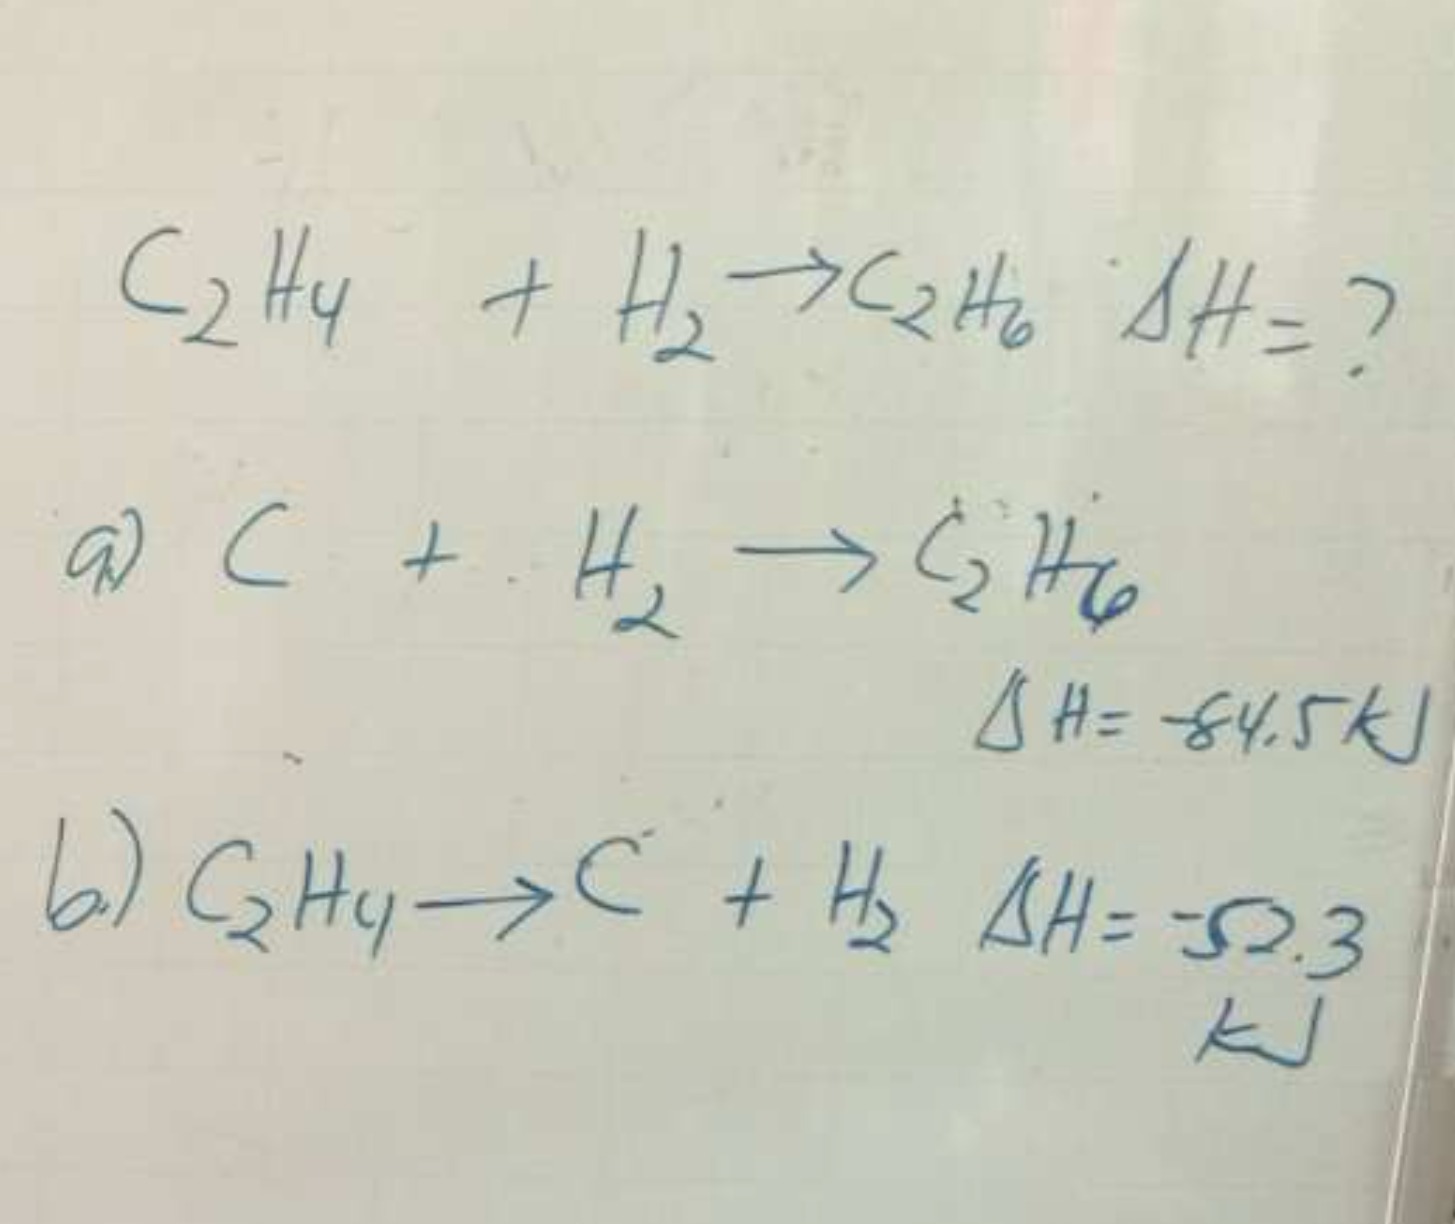 C₂H₄ + H₂ → C₂H₆ ΔH = ?
a) C + H₂ → C₂H₆
ΔH = -84.5 kJ
b.) C₂H₄ → C + H₂ ΔH = -52.3
kJ